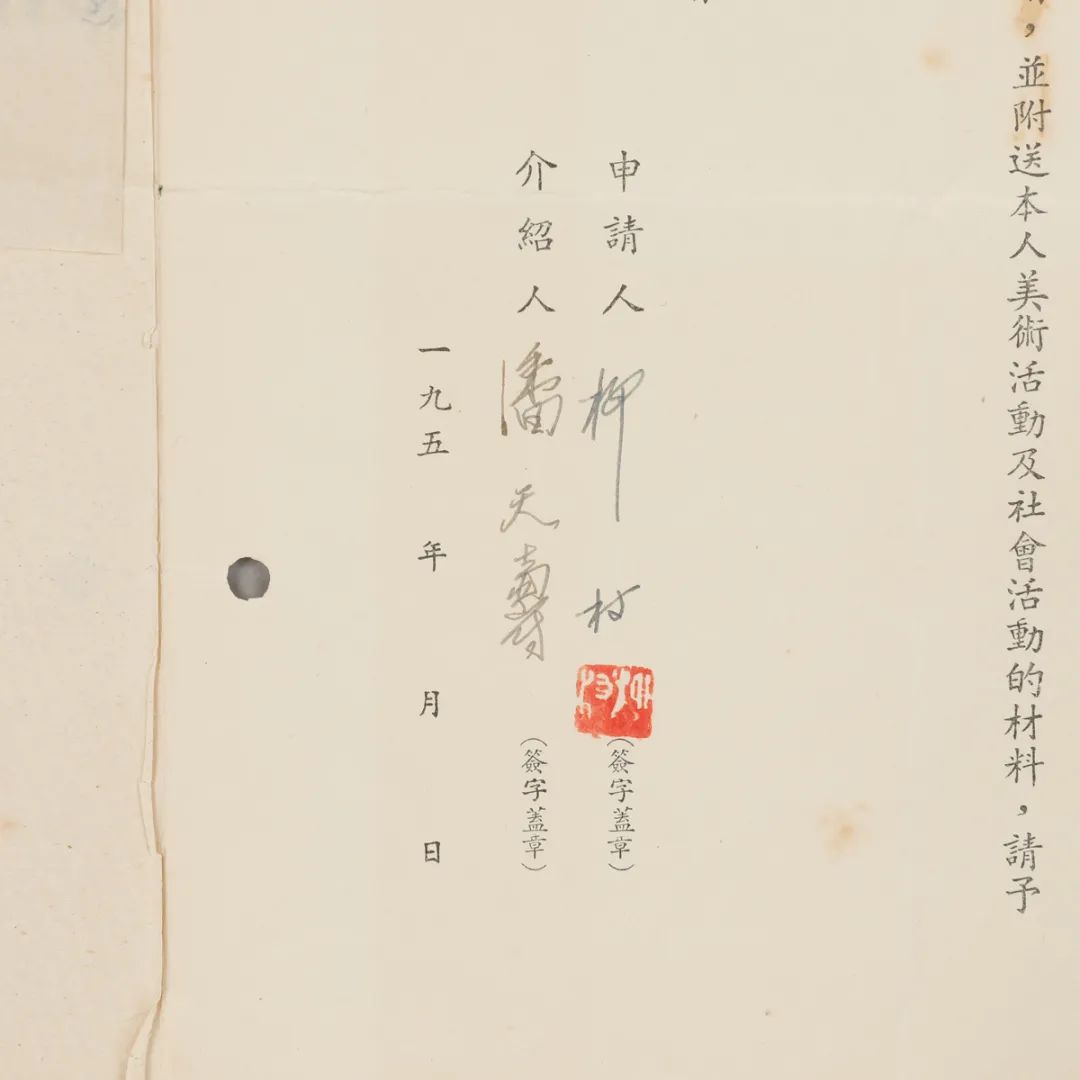 ，並附送本人美術活動及社會活動的材料，請予
申請人 柳村 （簽字蓋章）
介紹人 潘天壽 （簽字蓋章）
一九五 年 月 日